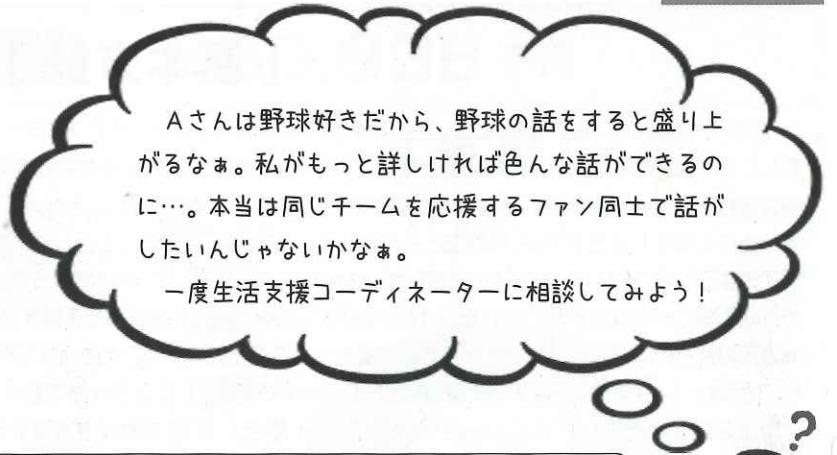 Aさんは野球好きだから、野球の話をすると盛り上
がるなぁ。私がもっと詳しければ色んな話ができるの
に…。本当は同じチームを応援するファン同士で話が
したいんじゃないかなぁ。
一度生活支援コーディネーターに相談してみよう！
?